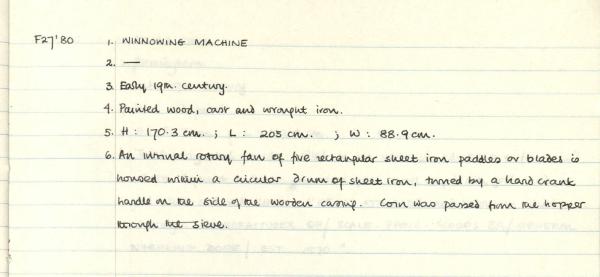 F27'80 1. WINNOWING MACHINE
2. —
3. Early 19th. century.
4. Painted wood, cast and wrought iron.
5. H : 170.3 cm. ; L : 205 cm. ; W : 88.9 cm.
6. An internal rotary fan of five rectangular sheet iron paddles or blades is
housed within a circular drum of sheet iron, turned by a hand crank
handle on the side of the wooden casing. Corn was passed from the hopper
through the sieve.